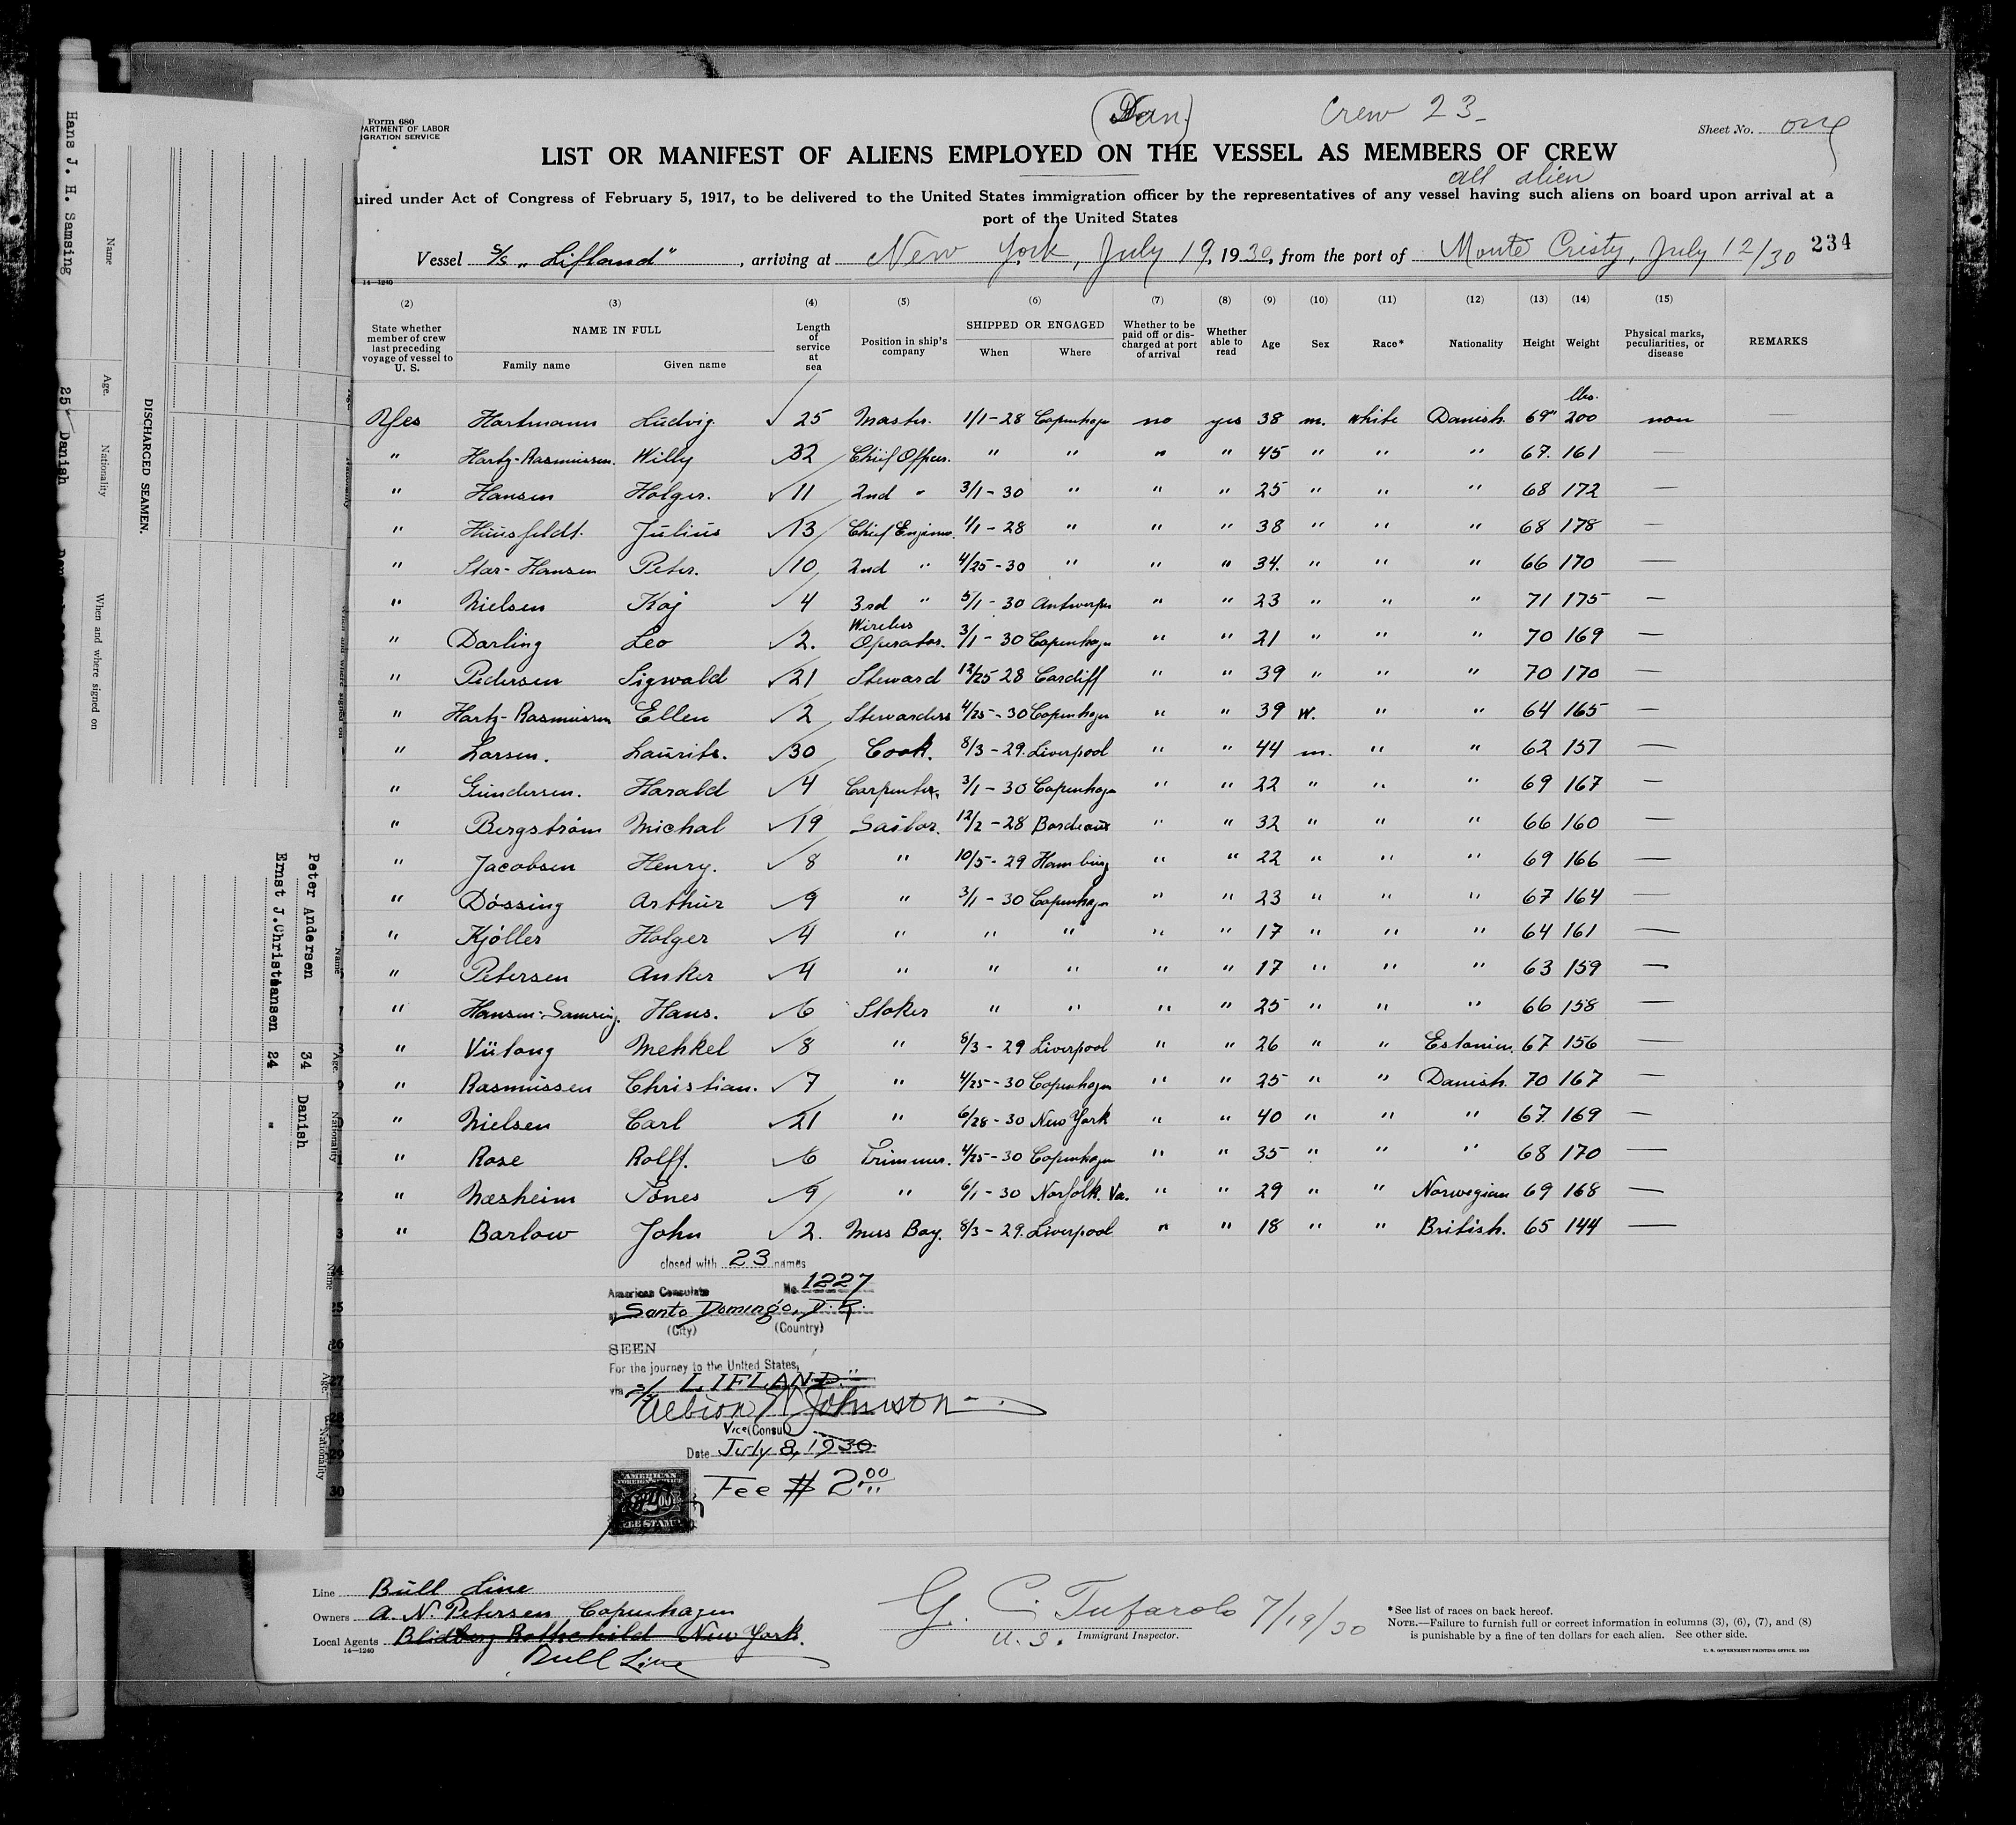 Form 680
PARTMENT OF LABOR
IGRATION SERVICE
(Dan.)
Crew 23
Sheet No. one
LIST OR MANIFEST OF ALIENS EMPLOYED ON THE VESSEL AS MEMBERS OF CREW
all alien
uired under Act of Congress of February 5, 1917, to be delivered to the United States immigration officer by the representatives of any vessel having such aliens on board upon arrival at a
port of the United States
Vessel S/S „Lifland", arriving at New York, July 19, 1930, from the port of Monte Cristy, July 12/30 234
14—1240
(2) (3) (4) (5) (6) (7) (8) (9) (10) (11) (12) (13) (14) (15)
State whether member of crew last preceding voyage of vessel to U. S. NAME IN FULL Family name Given name Length of service at sea Position in ship's company SHIPPED OR ENGAGED When Where Whether to be paid off or discharged at port of arrival Whether able to read Age Sex Race* Nationality Height Weight Physical marks, peculiarities, or disease REMARKS
lbs.
Yes Hartmann Ludvig. 25 Master. 1/1-28 Copenhagen no yes 38 m. white Danish. 69" 200 non —
" Hartz-Rasmussen. Willy 32 Chief Officer. " " " " 45 " " " 67. 161 —
" Hansen Holger. 11 2nd " 3/1-30 " " " 25 " " " 68 172 —
" Huusfeldt. Julius 13 Chief Engineer. 1/1-28 " " " 38 " " " 68 178 —
" Star-Hansen Peter. 10 2nd " 4/25-30 " " " 34. " " " 66 170 —
" Nielsen Kaj 4 3rd " 5/1-30 Antwerpen " " 23 " " " 71 175 —
" Darling Leo 2. Wireless Operator. 3/1-30 Copenhagen " " 21 " " " 70 169 —
" Pedersen Sigwald 21 Steward 12/25 28 Cardiff " " 39 " " " 70 170 —
" Hartz-Rasmussen Ellen 2 Stewardess 4/25-30 Copenhagen " " 39 W. " " 64 165 —
" Larsen. Laurits. 30 Cook. 8/3-29. Liverpool " " 44 m. " " 62 157 —
" Gundersen. Harald 4 Carpenter. 3/1-30 Copenhagen " " 22 " " " 69 167 —
" Bergström Michal 19 Sailor. 12/2-28 Bordeaux " " 32 " " " 66 160 —
" Jacobsen Henry. 8 " 10/5-29 Hamburg " " 22 " " " 69 166 —
" Dóssing Arthur 9 " 3/1-30 Copenhagen " " 23 " " " 67 164 —
" Kjóller Holger 4 " " " " " 17 " " " 64 161 —
" Petersen Anker 4 " " " " " 17 " " " 63 159 —
" Hansen-Samsing. Hans. 6 Stoker " " " " 25 " " " 66 158 —
" Vütong Mehkel 8 " 8/3-29 Liverpool " " 26 " " Estonien. 67 156 —
" Rasmussen Christian. 7 " 4/25-30 Copenhagen " " 25 " " Danish. 70 167 —
" Nielsen Carl 21 " 6/28-30 New York " " 40 " " " 67. 169 —
" Rose Rolff. 6 Trimmer. 4/25-30 Copenhagen " " 35 " " " 68 170 —
" Næsheim Tónes 9 " 6/1-30 Norfolk. Va. " " 29 " " Norwegian 69 168 —
" Barlow John 2. Mess Boy. 8/3-29. Liverpool " " 18 " " British. 65 144 —
closed with 23 names
American Consulate No. 1227
at Santo Domingo, D.R.
(City) (Country)
SEEN
For the journey to the United States,
via S/S LIFLAND"
Albion W Johnson
Vice (Consul)
Date July 8, 1930
AMERICAN
FOREIGN SERVICE
FEE STAMP
Fee # 2.00
Line Bull Line
Owners A. N. Petersen Copenhagen
Local Agents Rothschild New York.
14—1240
Bull Line
G. C. Tufarolo 7/19/30
U.S. Immigrant Inspector.
*See list of races on back hereof.
NOTE.—Failure to furnish full or correct information in columns (3), (6), (7), and (8)
is punishable by a fine of ten dollars for each alien. See other side.
U. S. GOVERNMENT PRINTING OFFICE: 1929
DISCHARGED SEAMEN.
Name Age. Nationality When and where signed on
Hans J. H. Samsing 25 Danish
Name Age. Nationality
Peter Andersen 34 Danish
Ernst J. Christiansen 24 "